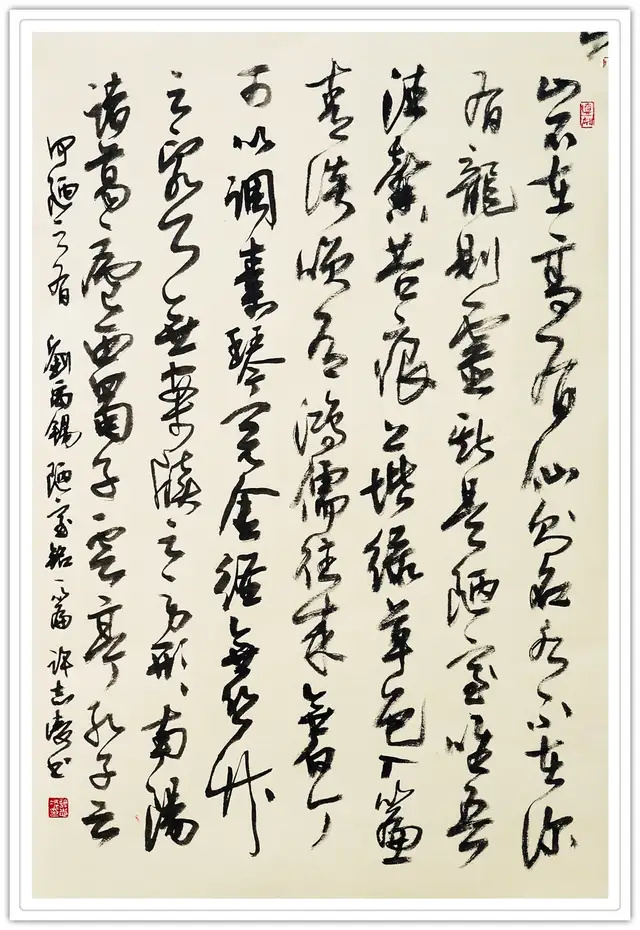 山不在高有仙则名水不在深
有龍则靈斯是陋室唯吾
德馨苔痕上堦綠草色入簾
青談笑有鴻儒往来無白丁
可以調素琴閱金經無丝竹
之亂耳無案牘之勞形南陽
諸葛廬西蜀子雲亭孔子云
何陋之有 劉禹錫 陋室銘一篇 许志书